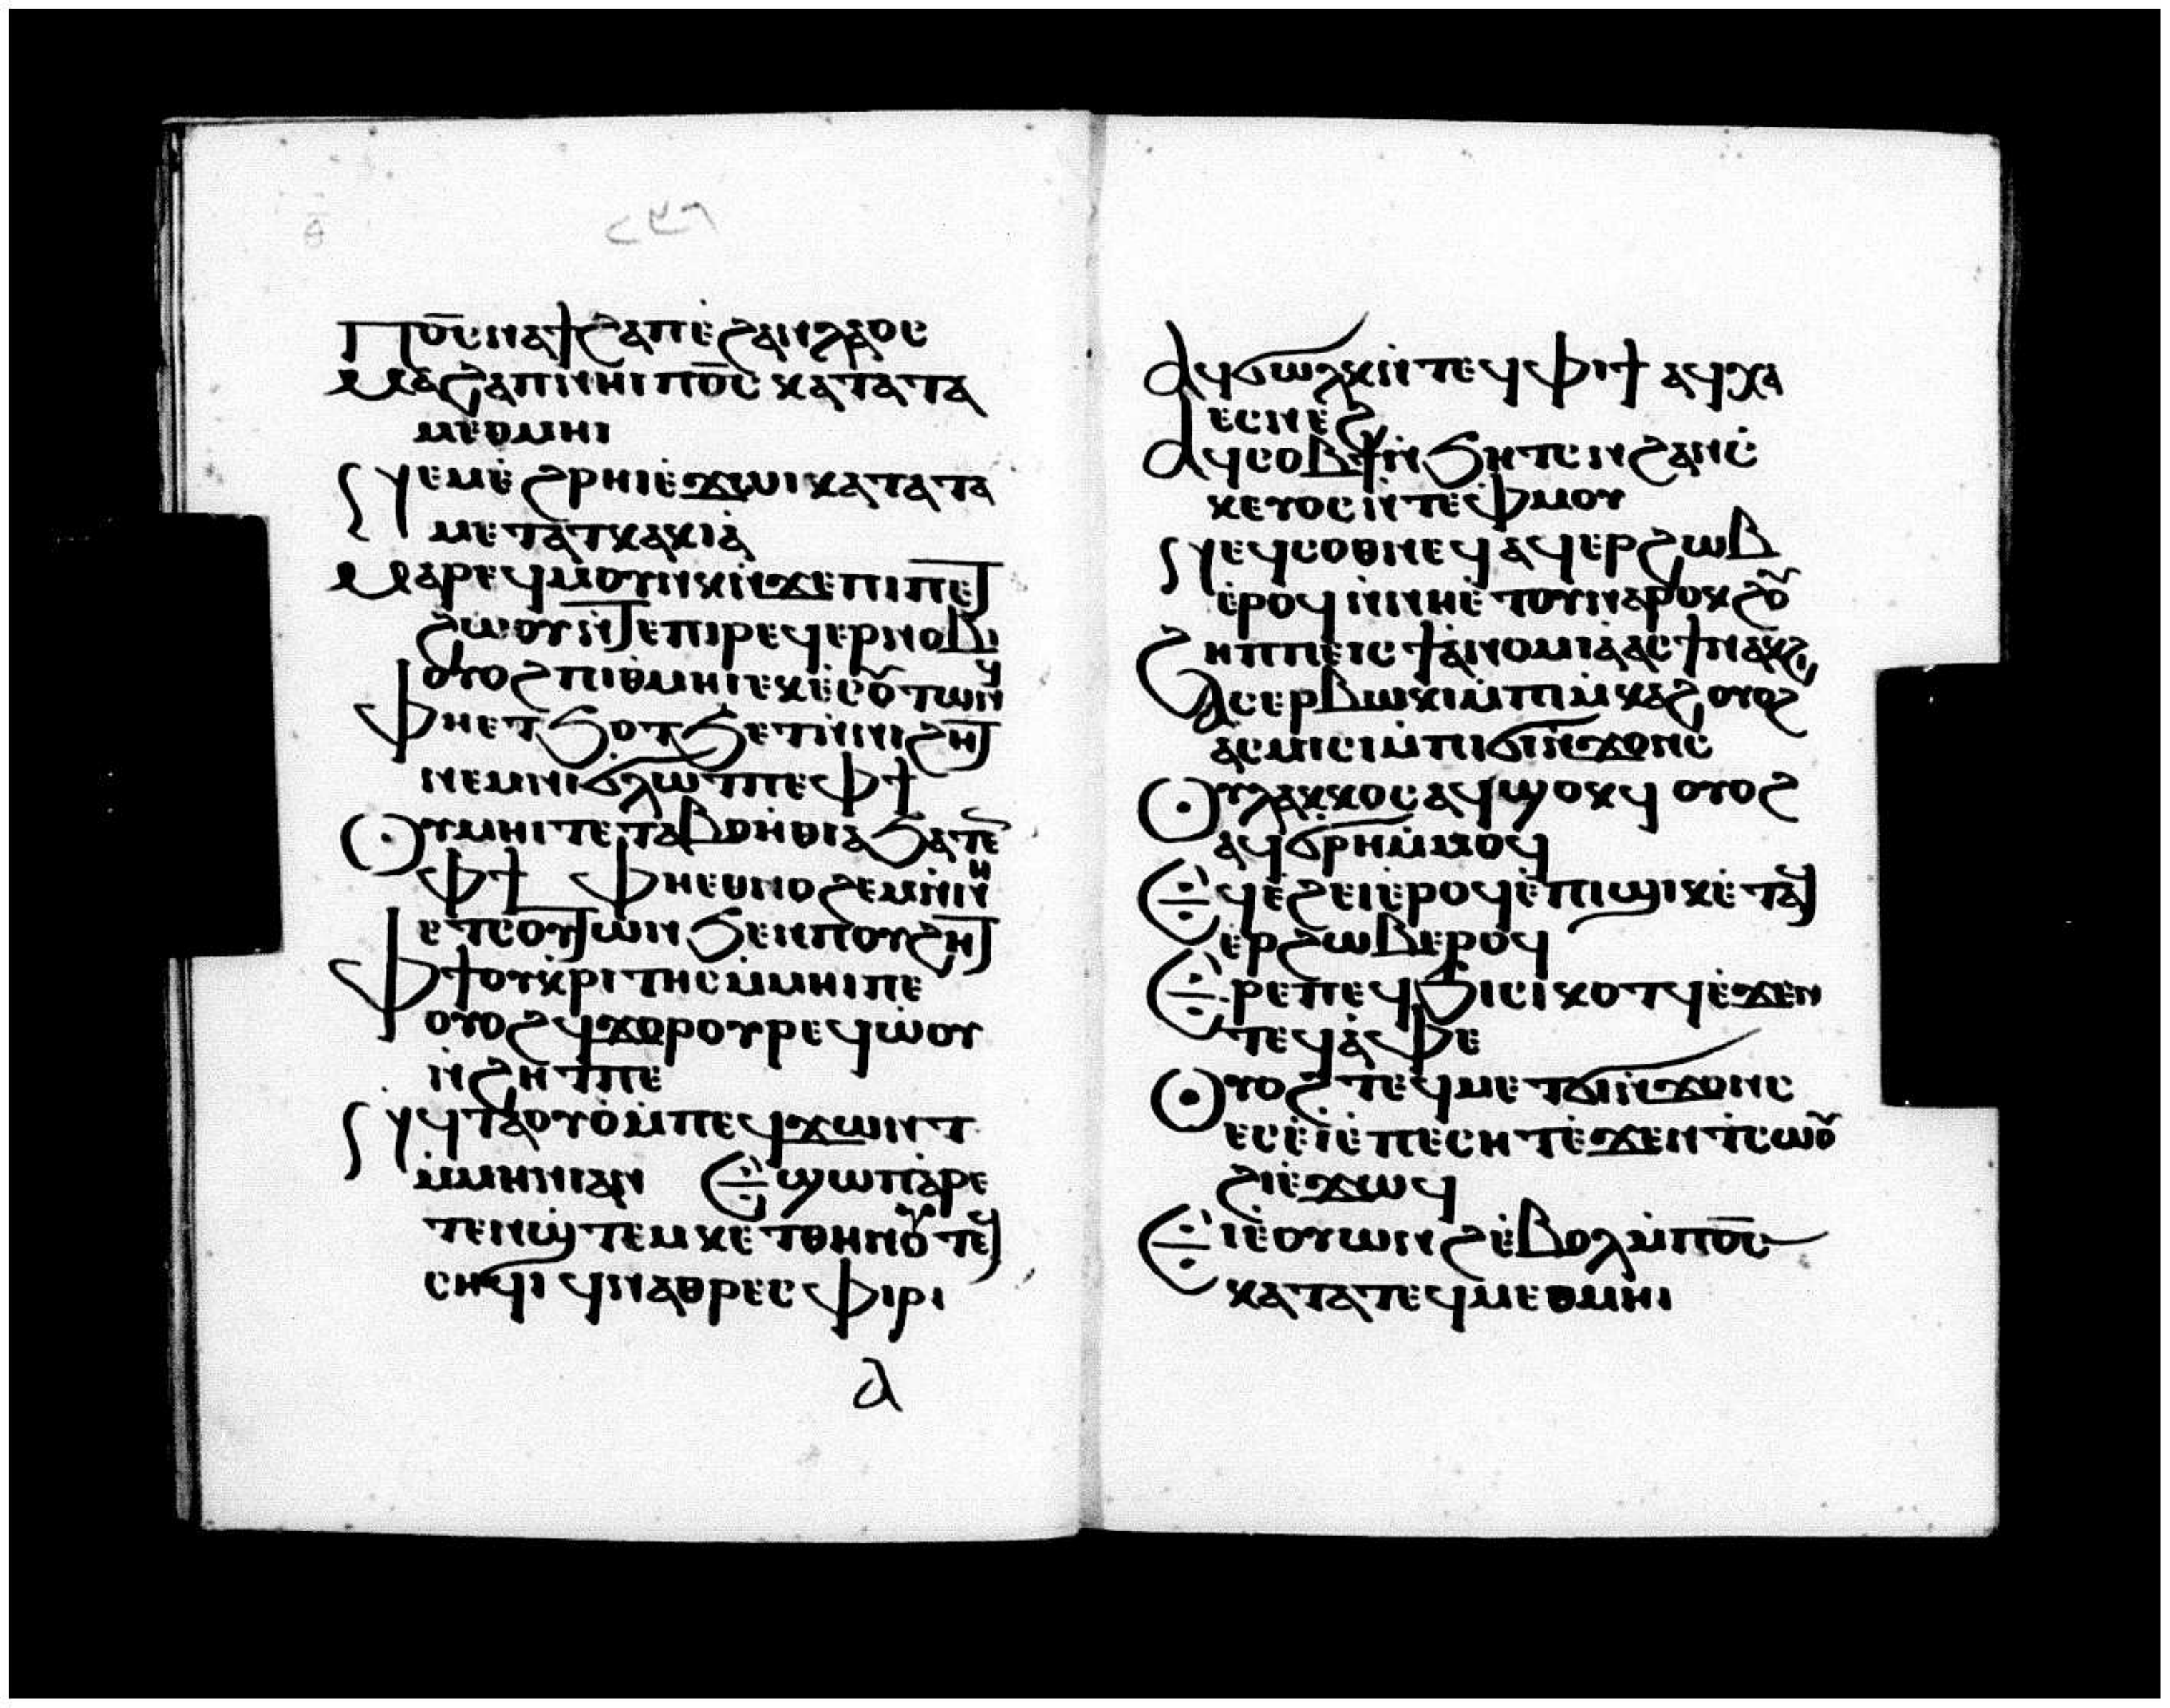 ⲑ̅
ⲡⲟ̅ⲥ̅ⲛⲁϯϩⲁⲡⲉ̀ϩⲁⲛⲗⲁⲟⲥ
ⲙⲁϩⲁⲡⲓⲛⲏⲓⲡⲟ̅ⲥ̅ⲕⲁⲧⲁⲧⲁ
ⲙⲉⲑⲙⲏⲓ
ⲛⲉⲙⲉ̀ϩⲣⲏⲓⲉ̀ϫⲱⲓⲕⲁⲧⲁⲧⲁ
ⲙⲉⲧⲁⲧⲕⲁⲕⲓⲁ̀
ⲙⲁⲣⲉϥⲙ̀ⲟⲩⲛⲕⲛ̀ϫⲉⲡⲓⲡⲉⲧ
ϩⲱⲟⲩⲛ̀ⲧⲉⲡⲓⲣⲉϥⲉⲣⲛⲟⲃⲓ
ⲟⲩⲟϩⲡⲓⲑ̀ⲙⲏⲓⲉⲕⲉ̀ⲥⲟⲩⲧⲱⲛϥ
ⲫⲏⲉⲧϧⲟⲧϧⲉⲧⲛ̀ⲛⲓϩⲏⲧ
ⲛⲉⲙⲛⲓϭⲗⲱⲧⲡⲉⲫϯ
ⲟⲩⲙⲏⲓⲧⲉⲧⲁⲃⲟⲏ̀ⲑⲓⲁϧⲁⲧⲉⲛ
ⲫϯ ⲫⲏⲉⲑⲛⲟϩⲉⲙⲛ̀ⲛⲏ
ⲉⲧⲥⲟⲩⲧⲱⲛϧⲉⲛⲡⲟⲩϩⲏⲧ
ⲫϯⲟⲩⲕ̀ⲣⲓⲧⲏⲥⲙ̀ⲙⲏⲓⲡⲉ
ⲟⲩⲟϩϥϫⲟⲣⲟⲩⲣⲉϥⲱ̀ⲟⲩ
ⲛ̀ϩⲏⲧⲡⲉ
ⲛϥⲧⲁⲟⲩⲟ̀ⲙ̀ⲡⲉϥϫⲱⲛⲧ
ⲙ̀ⲙⲏⲛⲓⲁⲛ ⲉ̀ϣⲱⲡⲁ̀ⲣⲉ
ⲧⲉⲛϣ̀ⲧⲉⲙⲕⲉⲧⲑⲏⲛⲟⲩⲧⲉϥ
ⲥⲏϥⲓ ϥⲛⲁⲑⲣⲉⲥⲫⲓⲣⲓ
ⲁ
ⲁϥϭⲱⲗⲕⲛ̀ⲧⲉϥⲫⲓϯ ⲁϥⲭⲁ
ⲉⲥⲛⲉ̀ϩ
ⲁϥⲥⲟⲃϯⲛ̀ϧⲏⲧⲥⲛϩⲁⲛⲥ̀
ⲕⲉⲩⲟⲥⲛ̀ⲧⲉⲫⲙⲟⲩ
ⲛⲉϥⲥⲟⲑⲛⲉϥⲁϥⲉⲣϩⲱⲃ
ⲉ̀ⲣⲟϥⲛ̀ⲛⲏⲉ̀ⲧⲟⲩⲛⲁⲣⲟⲕϩⲟⲩ
ϩⲏⲡⲡⲉⲓⲥϯⲁ̀ⲛⲟⲙⲓⲁ̀ⲁⲥϯⲛⲁⲕϩⲓ
ⲁⲥⲉⲣⲃⲱⲕⲓⲙ̀ⲡⲓⲙ̀ⲕⲁϩⲟⲩⲟϩ
ⲁⲥⲙⲓⲥⲓⲙ̀ⲡⲓϭⲓⲛ̀ϫⲟⲛⲥ
ⲟⲩⲗⲁⲕⲕⲟⲥⲁϥϣⲟⲕϥ ⲟⲩⲟϩ
ⲁϥϭⲣⲏⲙ̀ⲙⲟϥ
ⲉϥⲉ̀ϩⲉⲓⲉ̀ⲣⲟϥⲉ̀ⲡⲓϣⲓⲕⲉ̀ⲧⲁϥ
ⲉⲣϩⲱⲃⲉⲣⲟϥ
ⲉⲣⲉⲡⲉϥϧⲓⲥⲓⲕⲟⲧϥⲉ̀ϫⲉⲛ
ⲧⲉϥⲁ̀ⲫⲉ
ⲟⲩⲟϩⲧⲉϥⲙⲉⲧϭⲓⲛ̀ϫⲟⲛⲥ
ⲉⲥⲉ̀ⲓ̀ⲉ̀ⲡⲉⲥⲏⲧⲉ̀ϫⲉⲛⲧⲥⲱⲟⲩ
ϩⲓⲉ̀ϫⲱϥ
ⲉⲓⲉ̀ⲟⲩⲱⲛϩⲉ̀ⲃⲟⲗⲙ̀ⲡⲟ̅ⲥ̅
ⲕⲁⲧⲁⲧⲉϥⲙⲉⲑⲙⲏⲓ